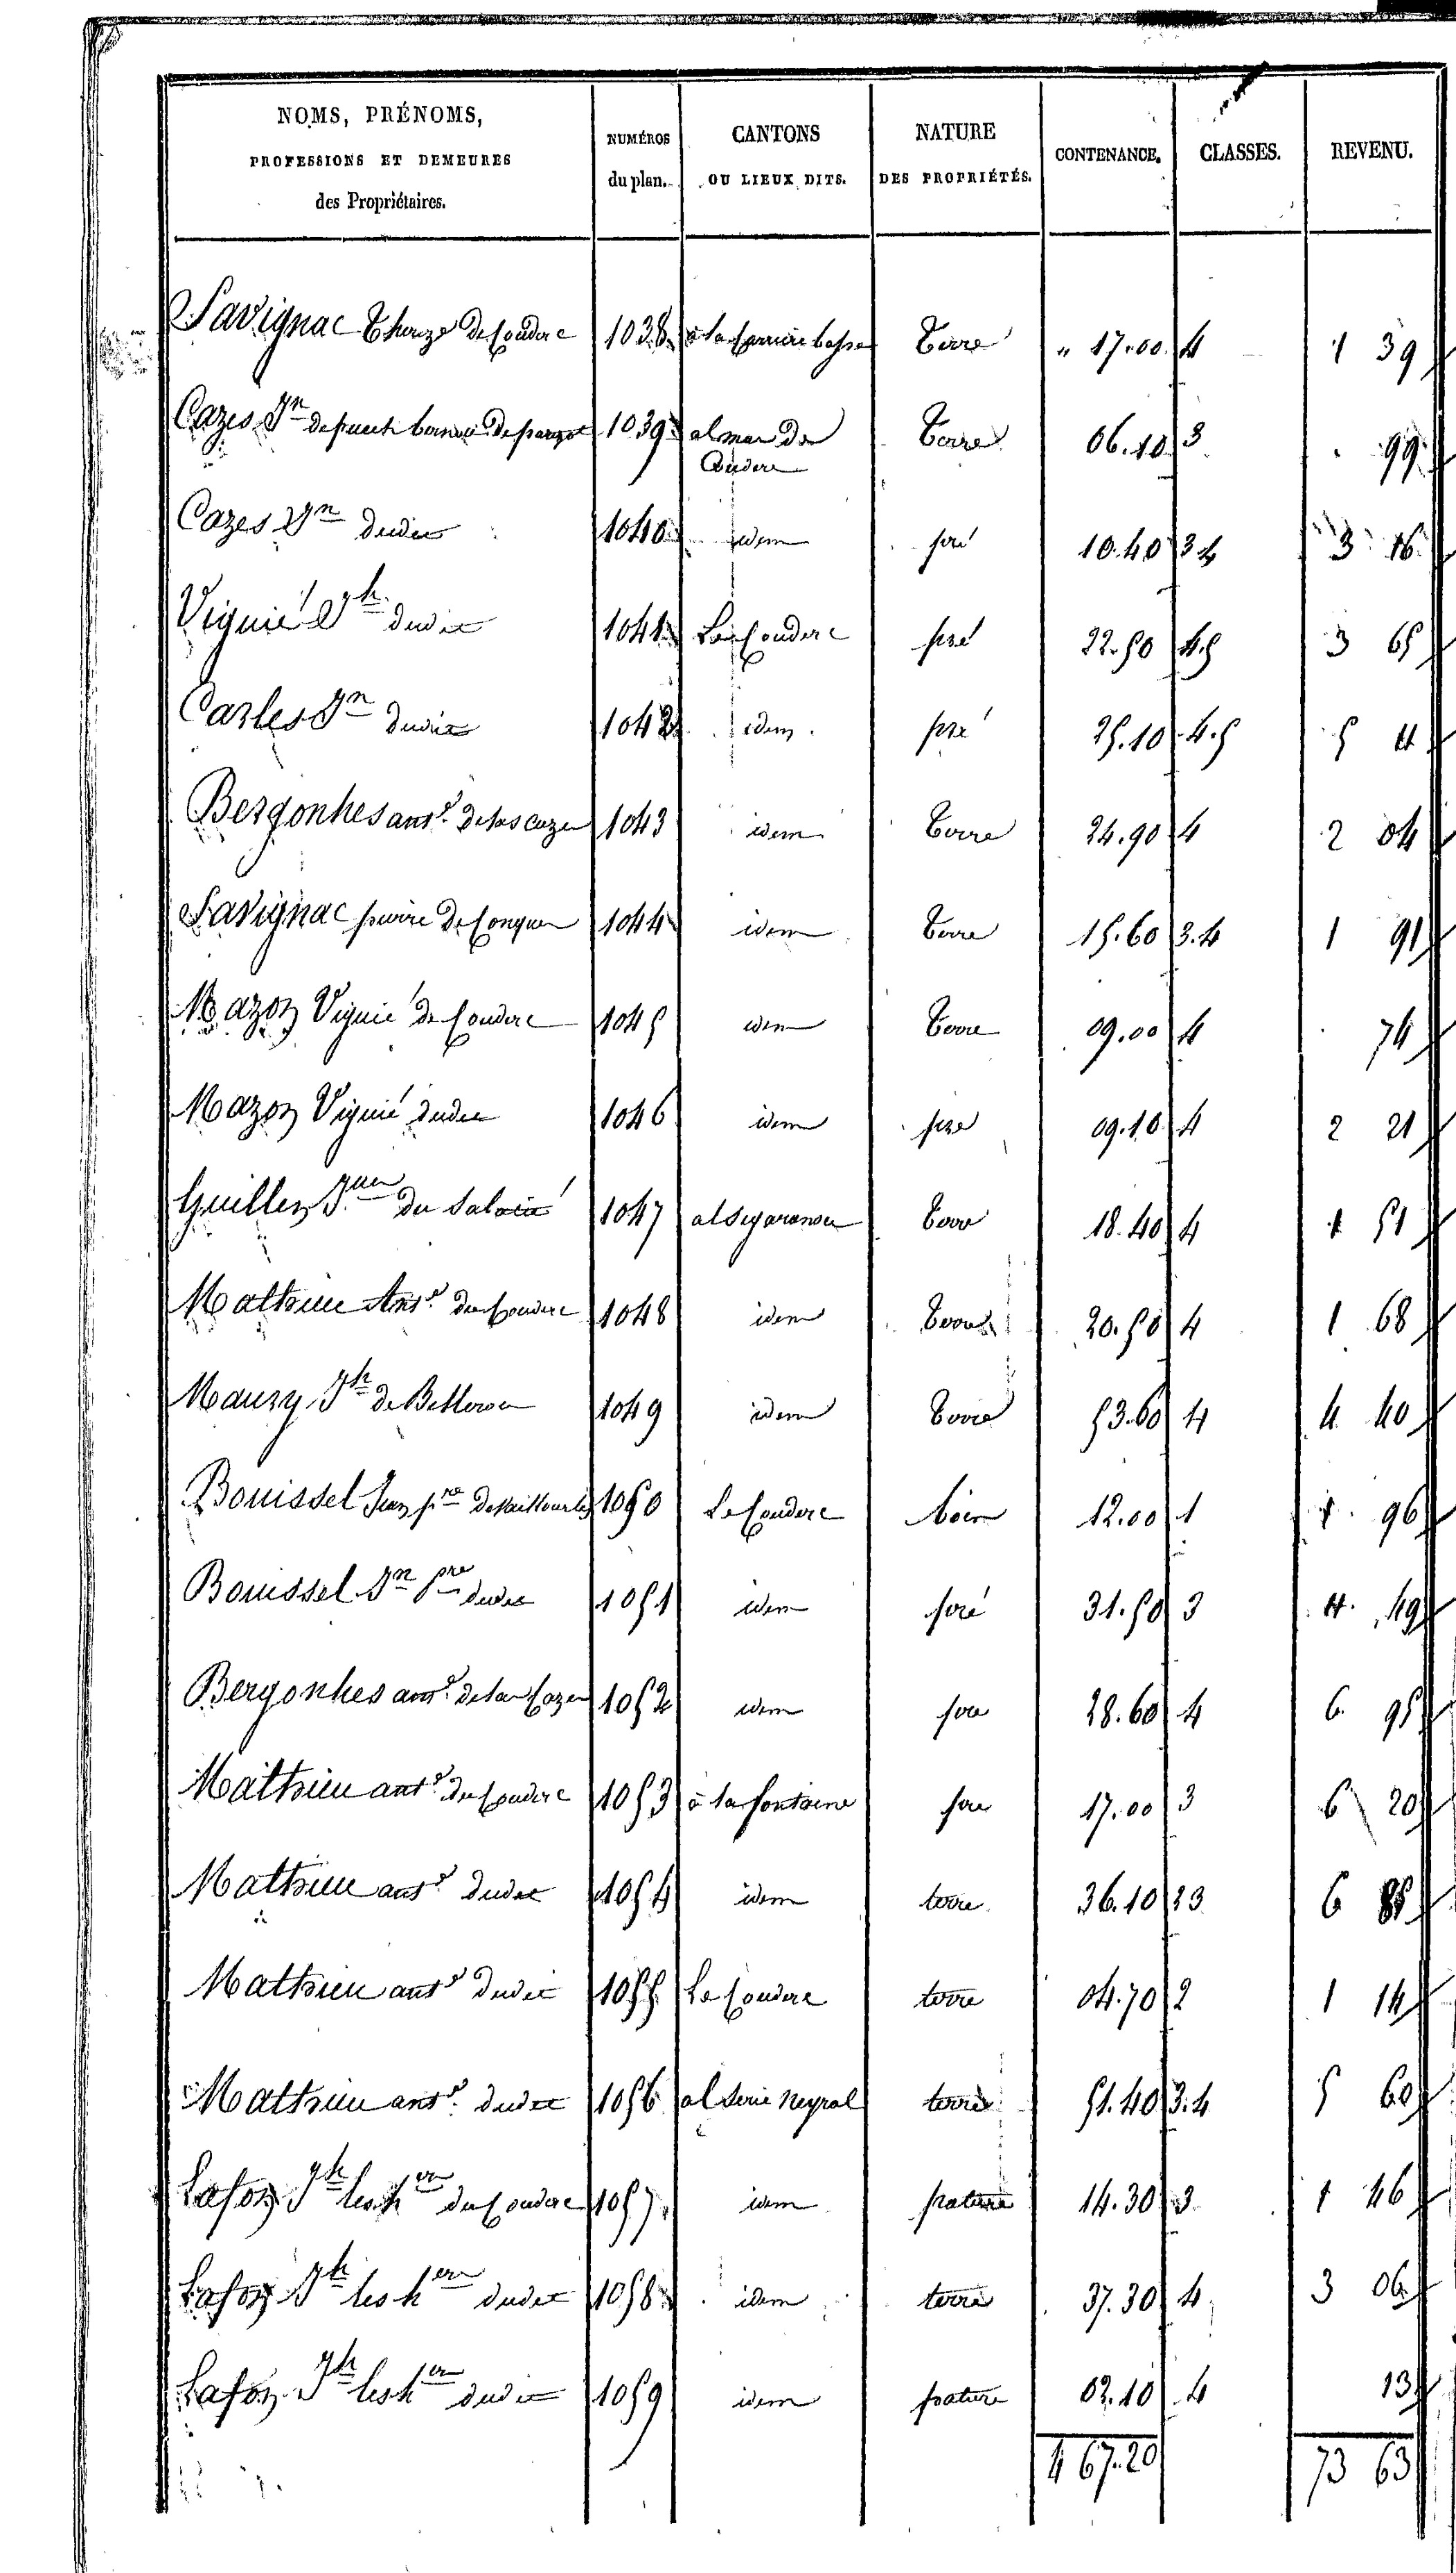 NOMS, PRÉNOMS,
PROFESSIONS ET DEMEURES
des Propriétaires.
NUMÉROS
du plan.
CANTONS
OU LIEUX DITS.
NATURE
DES PROPRIÉTÉS.
CONTENANCE.
CLASSES.
REVENU.
Savignac Therèze de Couderc 1038 à la Carriere basse Terre " 17.00 4 1 39
Cazes Jn de puech 1039 al mas de Terre 06.10 3 . 99
Couderc
Cazes Jn dudit 1040 idem pré 10.40 3.4 3 16
Viguié Jh dudit 1041 Le Couderc pré 22.50 4.5 3 65
Carles Jn dudit 1042 idem pré 25.10 4.5 5 11
Bergonhes ant.e de las cazes 1043 idem Terre 24.90 4 2 04
Savignac pierre de Conques 1044 idem Terre 15.60 3.4 1 91
Mazon Viguié de Couderc 1045 idem Terre 09.00 4 . 74
Mazon Viguié dudit 1046 idem pre 09.10 4 2 21
Guillen du 1047 Terre 18.40 4 1 51
Mathieu Ant.e du Couderc 1048 idem Terre 20.50 4 1 68
Maury Jh de 1049 idem Terre 53.60 4 4 40
Bouissel Jean pre 1050 Le Couderc bois 12.00 1 1 96
Bouissel Jn Pre dudit 1051 idem pré 31.50 3 11 49
Bergonhes ant.e de las Cazes 1052 idem pre 28.60 4 6 95
Mathieu ant.e du Couderc 1053 à la fontaine pre 17.00 3 6 20
Mathieu ant.e dudit 1054 idem terre 36.10 23 6 85
Mathieu ant.e dudit 1055 Le Couderc terre 04.70 2 1 14
Mathieu ant.e dudit 1056 al neyral terre 51.40 3.4 5 60
Lafon Jh les her du Couderc 1057 idem pature 14.30 3 1 46
Lafon Jh les her dudit 1058 idem terre 37.30 4 3 06
Lafon Jh les her dudit 1059 idem pature 02.10 4 13
4 67.20 73 63